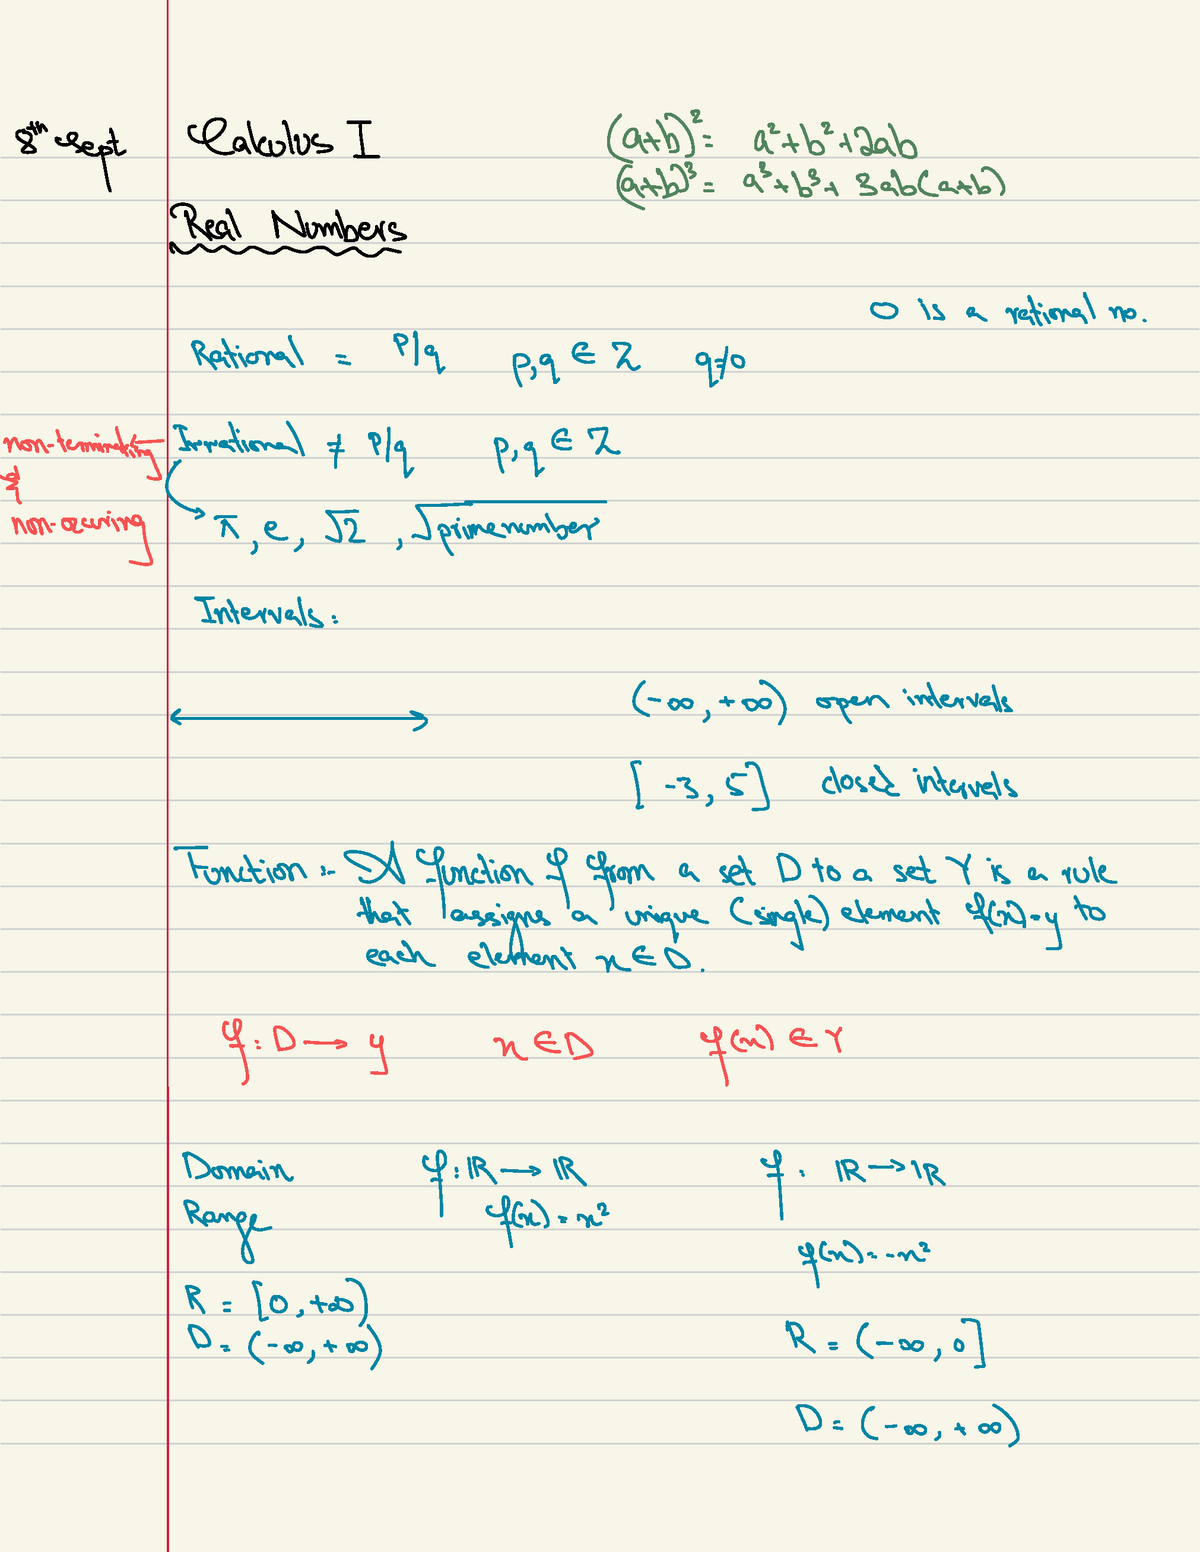 8th Sept
Calculus I
(a+b)² = a²+b²+2ab
(a+b)³ = a³+b³+ 3ab(a+b)
Real Numbers
0 is a rational no.
Rational = P/q p,q ∈ Z q≠0
non-terminating
&
non-occuring
Irrational ≠ P/q p,q ∈ Z
π, e, √2, √prime number
Intervals:
(-∞, +∞) open intervals
[-3, 5] closed intervals
Function :- A function f from a set D to a set Y is a rule
that assigns a unique (single) element f(x)=y to
each element x ∈ D.
f: D → y x ∈ D f(x) ∈ Y
Domain
Range
R = [0, +∞)
D = (-∞, +∞)
f: ℝ → ℝ
f(x) = x²
f: ℝ → ℝ
f(x) = -x²
R = (-∞, 0]
D = (-∞, +∞)